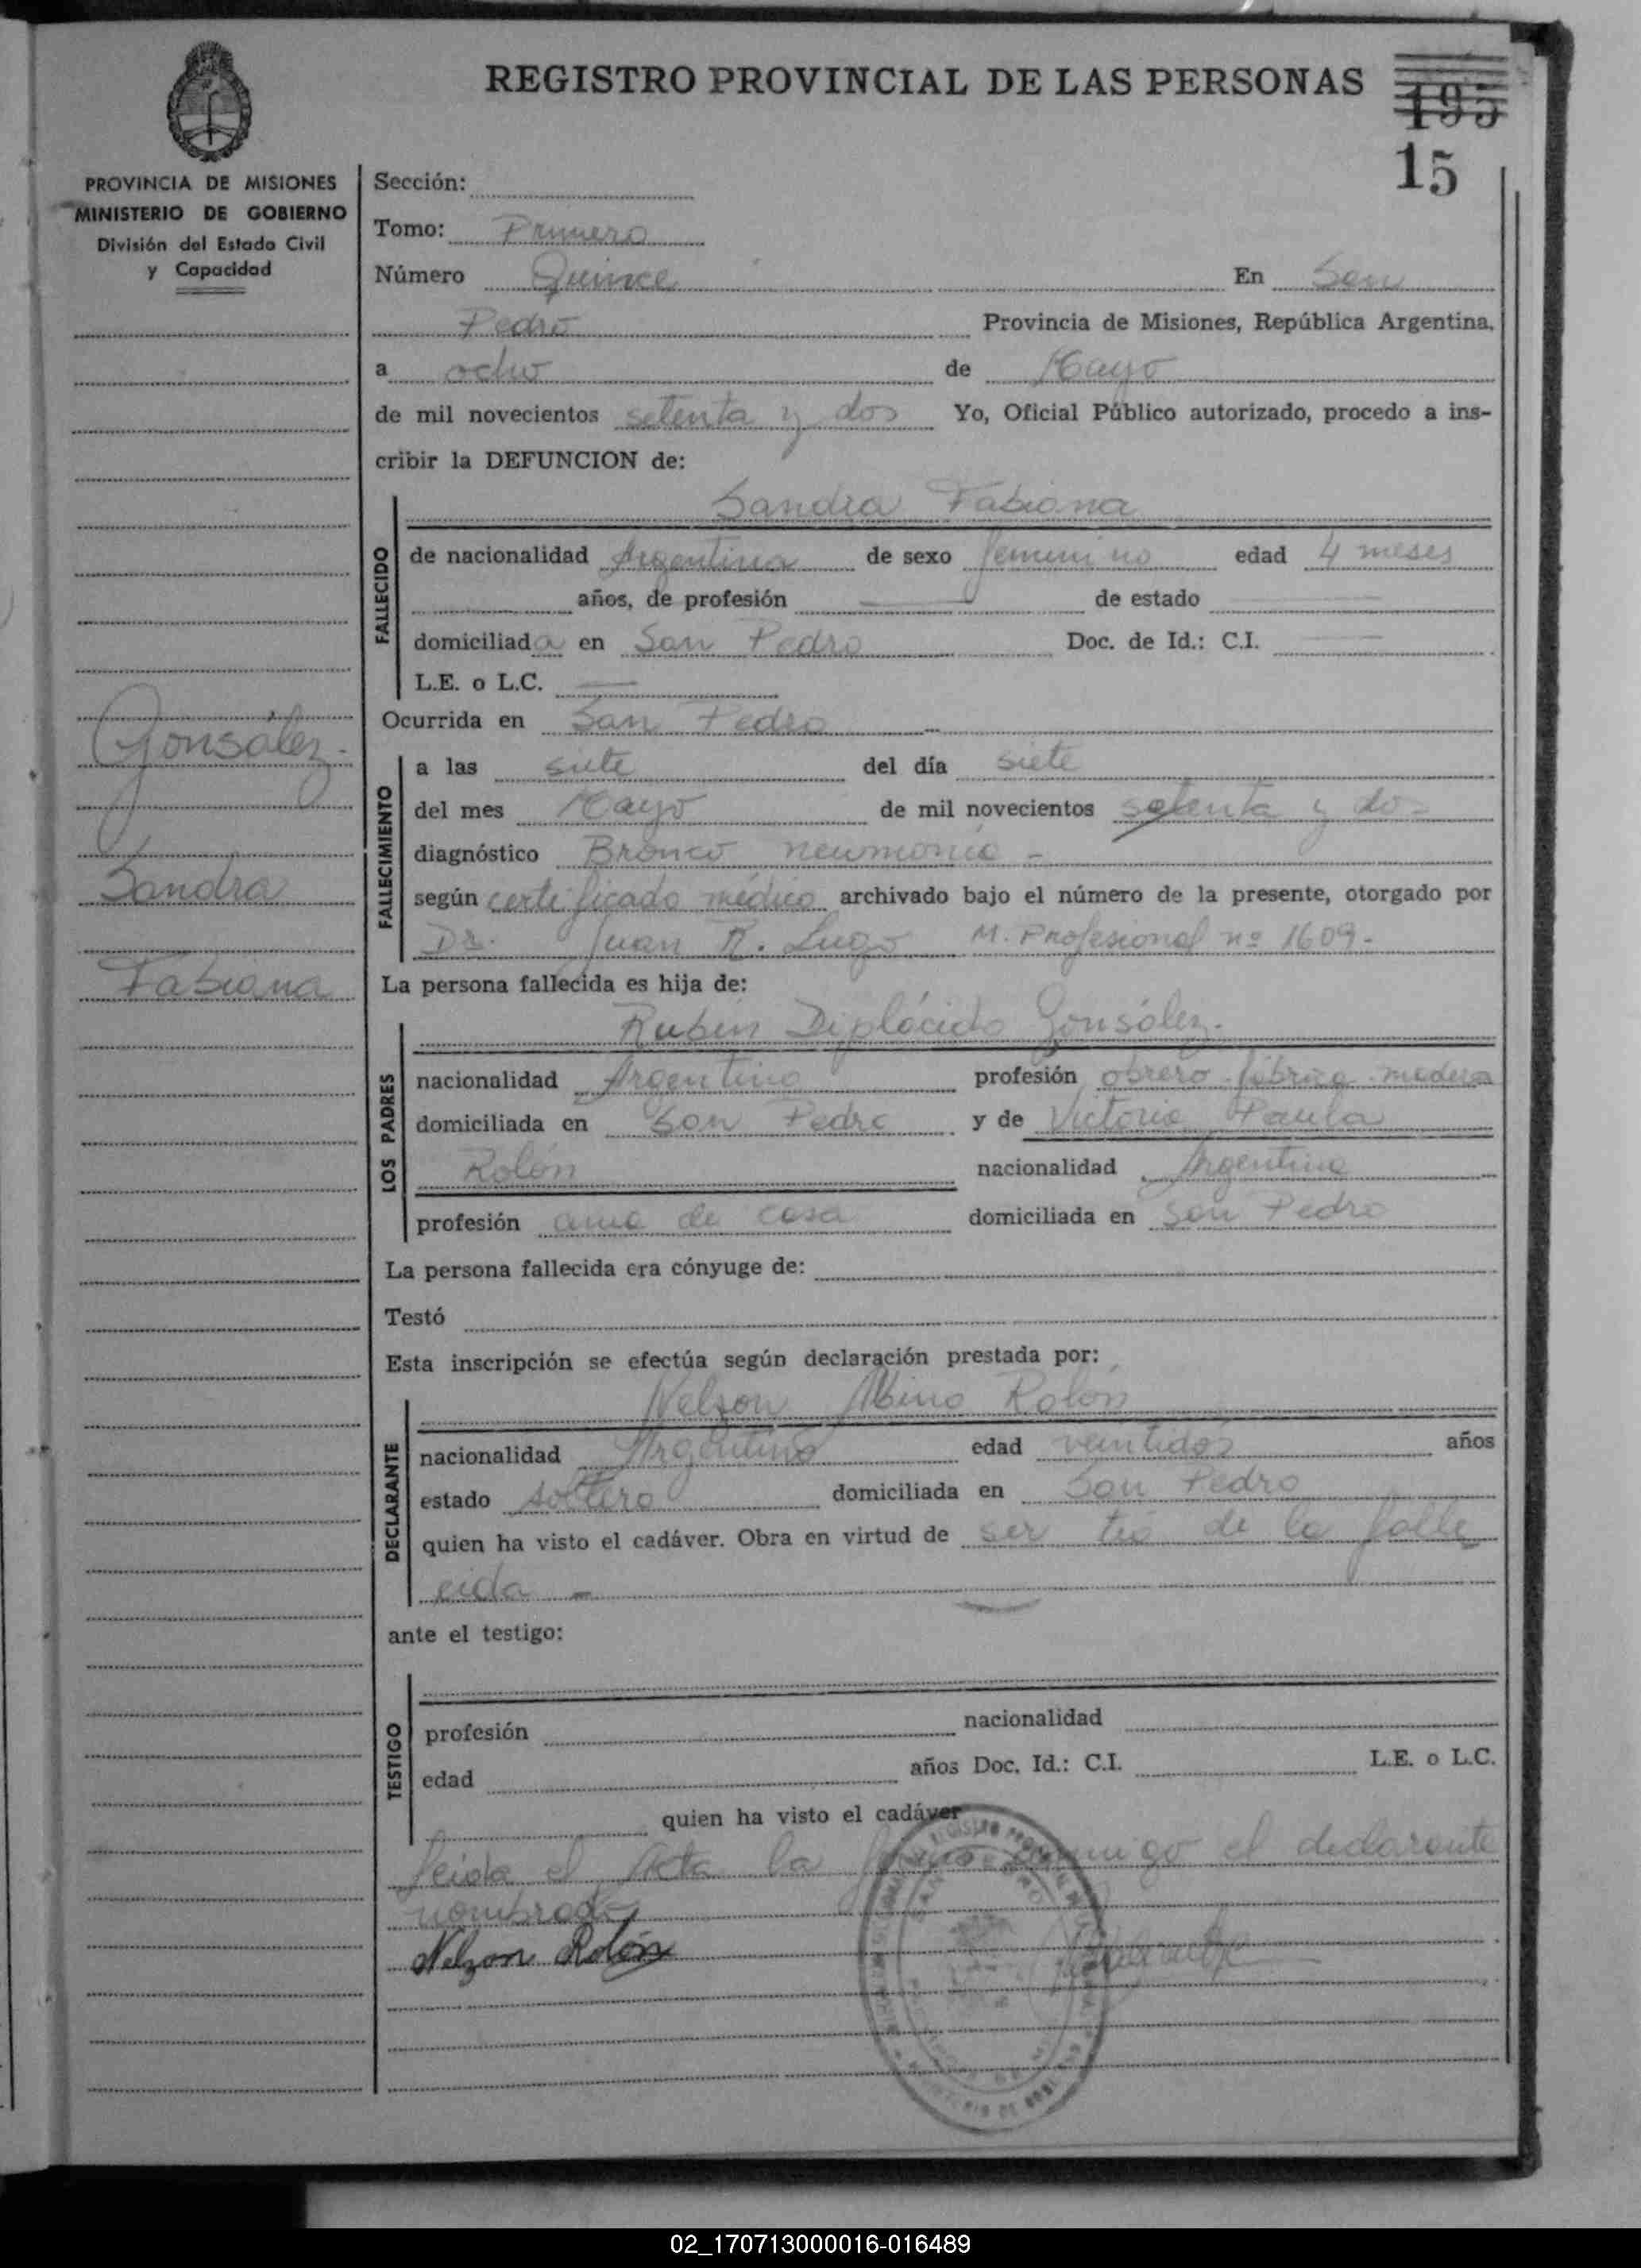 REGISTRO PROVINCIAL DE LAS PERSONAS
195
15
PROVINCIA DE MISIONES
MINISTERIO DE GOBIERNO
División del Estado Civil
y Capacidad
Gonsález.
Sandra
Fabiana
Sección:
Tomo: Primero
Número Quince En San
Pedro Provincia de Misiones, República Argentina,
a ocho de Mayo
de mil novecientos setenta y dos Yo, Oficial Público autorizado, procedo a ins-
cribir la DEFUNCION de:
Sandra Fabiana
FALLECIDO
de nacionalidad Argentina de sexo femenino edad 4 meses
años, de profesión — de estado —
domiciliada en San Pedro Doc. de Id.: C.I. —
L.E. o L.C. —
Ocurrida en San Pedro
FALLECIMIENTO
a las siete del día siete
del mes Mayo de mil novecientos setenta y dos
diagnóstico Bronco neumonia -
según certificado médico archivado bajo el número de la presente, otorgado por
Dr. Juan R. Lugo M. Profesional nº 1609-
La persona fallecida es hija de:
Rubén Diplácido Gonsález.
LOS PADRES
nacionalidad Argentino profesión obrero fábrica madera
domiciliada en San Pedro y de Victoria Paula
Rolón nacionalidad Argentina
profesión ama de casa domiciliada en San Pedro
La persona fallecida era cónyuge de:
Testó
Esta inscripción se efectúa según declaración prestada por:
Nelson Albino Rolón
DECLARANTE
nacionalidad Argentino edad veintidos años
estado soltero domiciliada en San Pedro
quien ha visto el cadáver. Obra en virtud de ser tio de la falle
cida -
ante el testigo:
TESTIGO
profesión nacionalidad
edad años Doc. Id.: C.I. L.E. o L.C.
quien ha visto el cadáver
leida el Acta la conmigo el declarante
nombrado
Nelzon Rolón
02_170713000016-016489